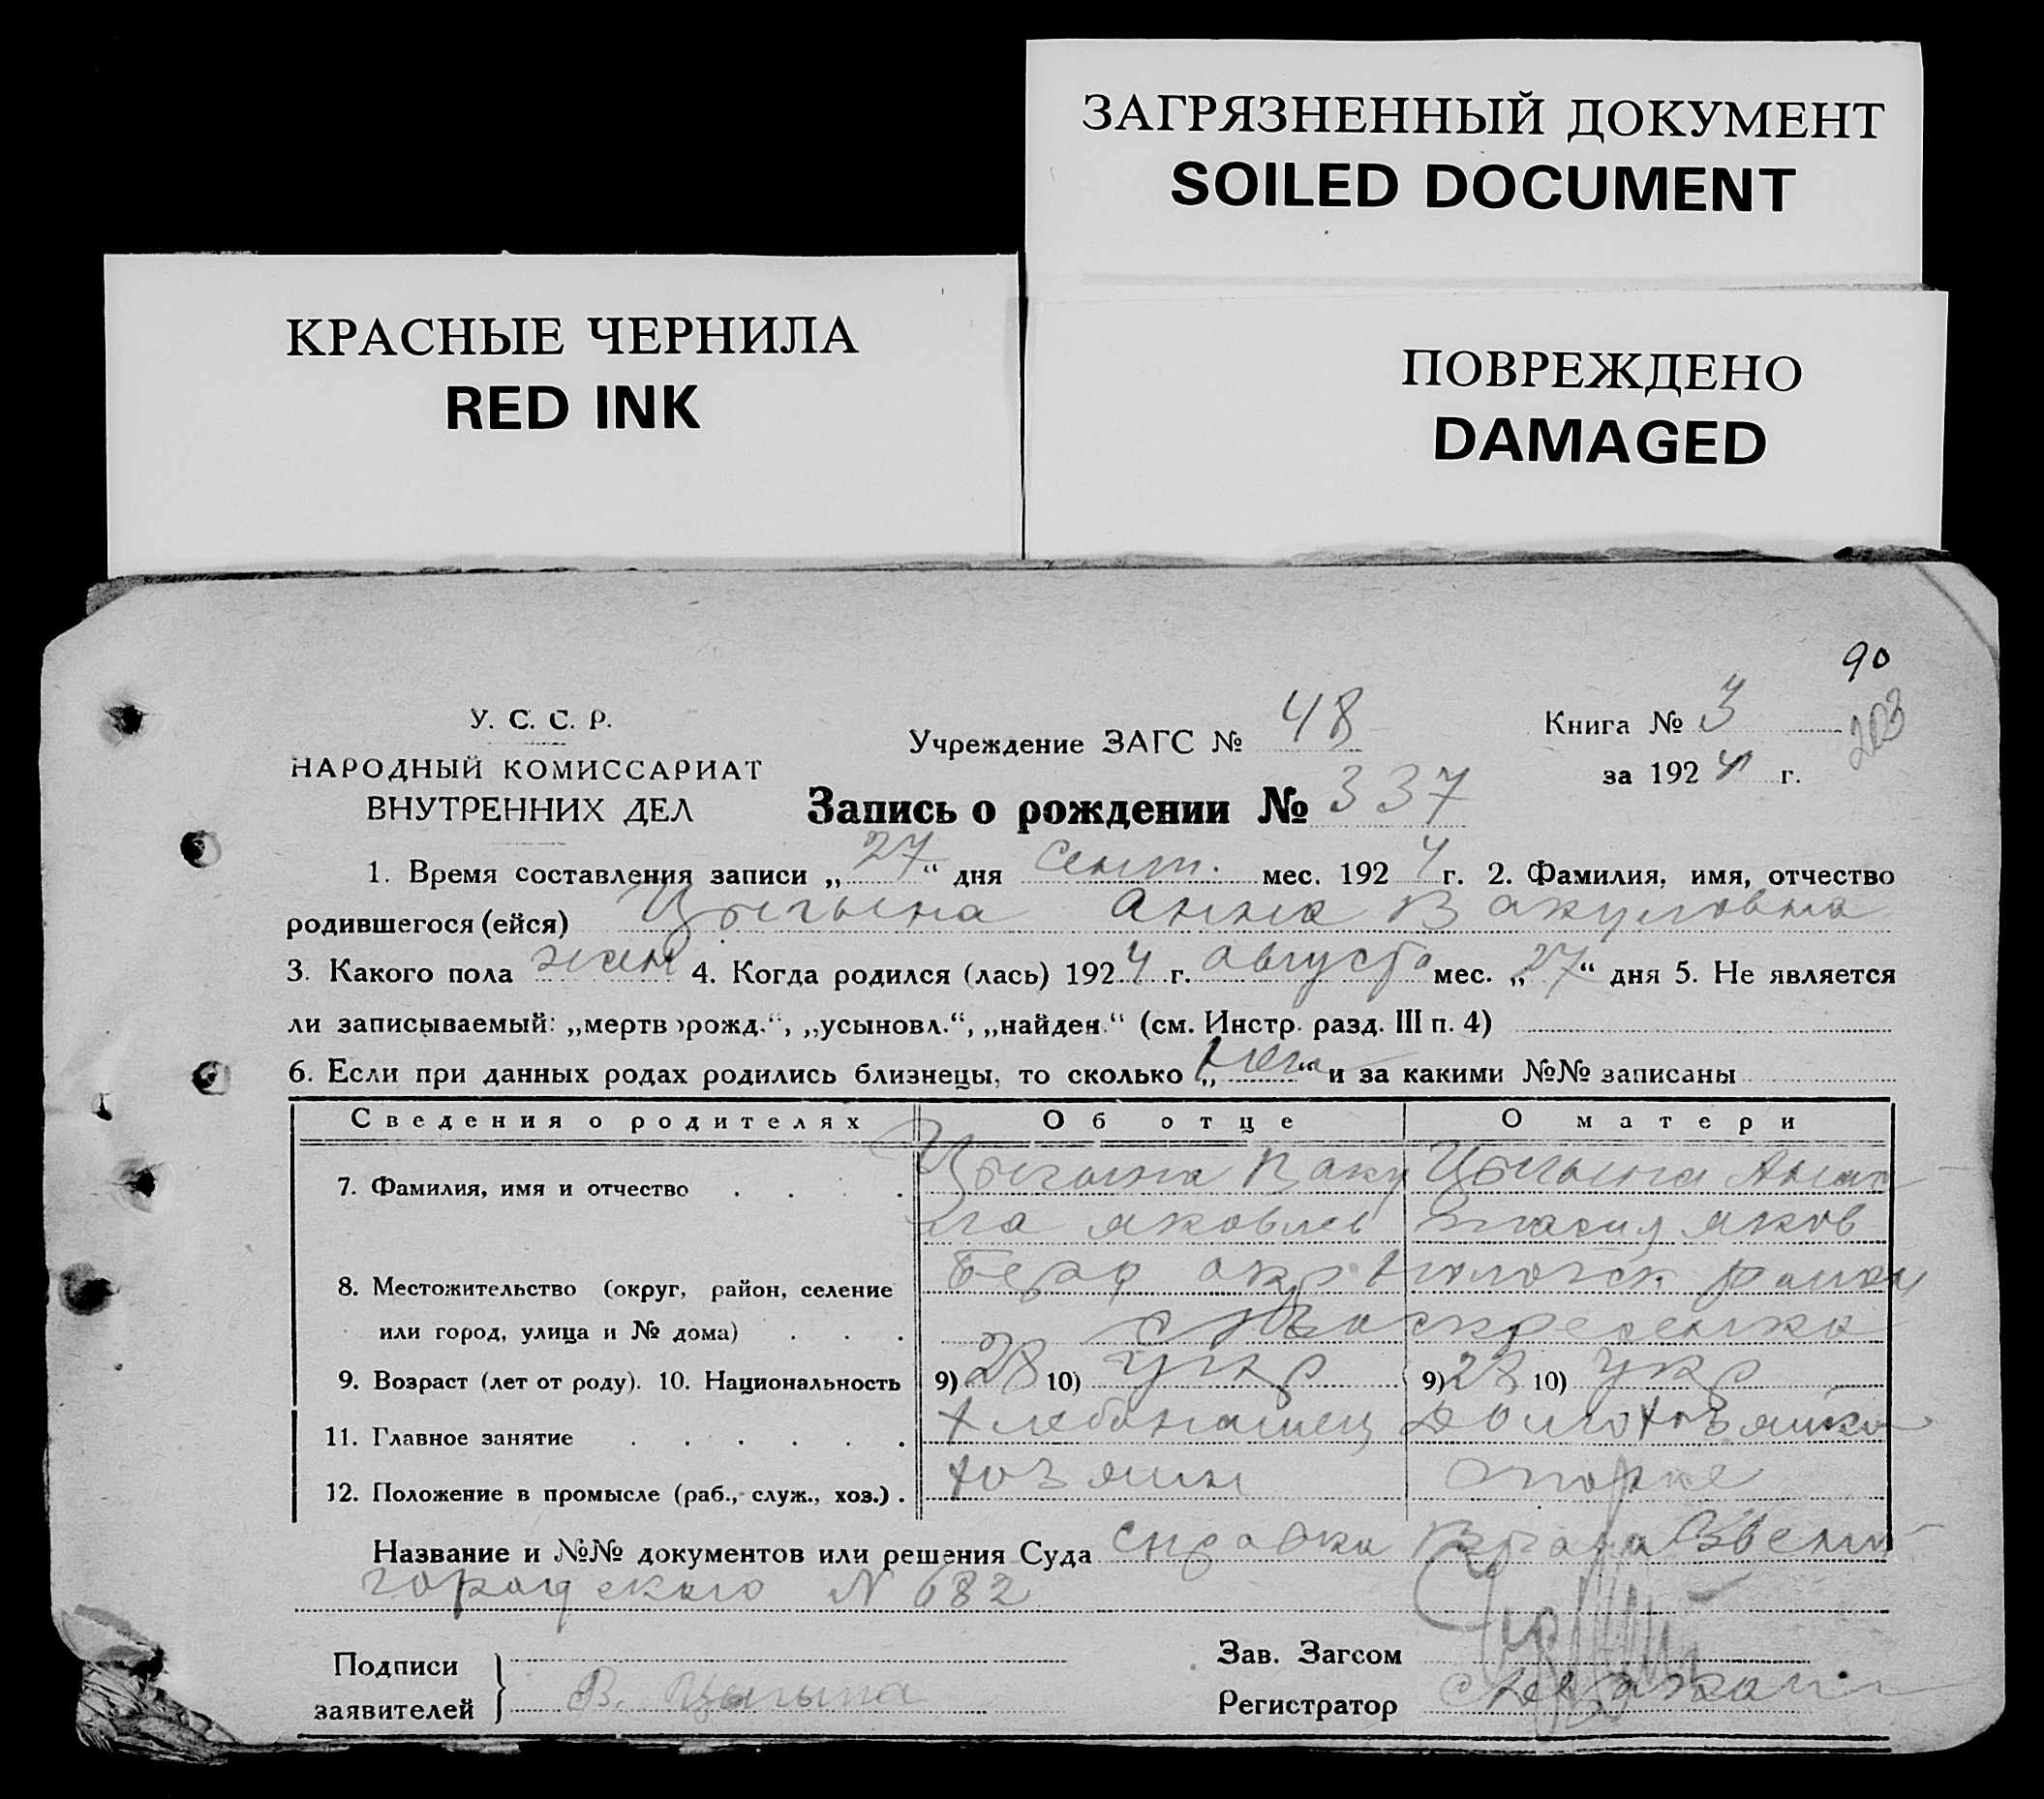 ЗАГРЯЗНЕННЫЙ ДОКУМЕНТ
SOILED DOCUMENT
КРАСНЫЕ ЧЕРНИЛА
RED INK
ПОВРЕЖДЕНО
DAMAGED
90
203
У. С. С. Р.
НАРОДНЫЙ КОМИССАРИАТ
ВНУТРЕННИХ ДЕЛ
Учреждение ЗАГС № 48
Книга № 3
за 1924 г.
Запись о рождении № 337
1. Время составления записи „27“ дня сент. мес. 1924 г. 2. Фамилия, имя, отчество
родившегося (ейся) Цыгына Анна Вакуловна
3. Какого пола жен 4. Когда родился (лась) 1924 г. августа мес. „27“ дня 5. Не является
ли записываемый: „мертворожд.“, „усыновл.“, „найден.“ (см. Инстр. разд. III п. 4)
6. Если при данных родах родились близнецы, то сколько „нет“ и за какими №№ записаны
Сведения о родителях Об отце О матери
7. Фамилия, имя и отчество . . . . Цыгына Ваку Цыгына Анас
ла яковлев тасия яков
8. Местожительство (округ, район, селение Берд окр Пологск район
или город, улица и № дома) . . . с Воскресенка
9. Возраст (лет от роду). 10. Национальность 9) 28 10) укр 9) 28 10) укр
11. Главное занятие . . . . . . хлебопашец домохозяйка
12. Положение в промысле (раб., служ., хоз.) . хозяин
Название и №№ документов или решения Суда справка врача Звени
городского N 682
Подписи
заявителей В. Цыгына
Зав. Загсом
Регистратор